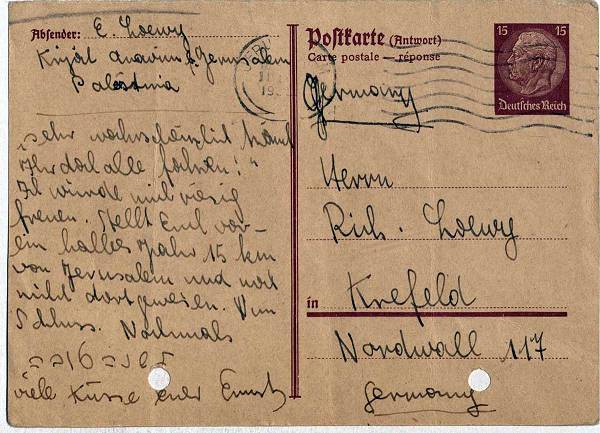 Absender: E. Loewy
Kirjat Anavim b/Jerusalem
Palestina
Postkarte (Antwort)
Carte postale — réponse
15 15
Deutsches Reich
Germany
"Sehr wahrscheinlich könnt
Ihr doch alle fahren!"
Ich würde mich riesig
freuen. Stellt Euch vor –
ein halbes Jahr 15 km
von Jerusalem und noch
nicht dort gewesen. Nun
Schluss. Nochmals
viele Küsse euer Ernst
Herrn
Rich. Loewy
in Krefeld
Nordwall 117
Germany